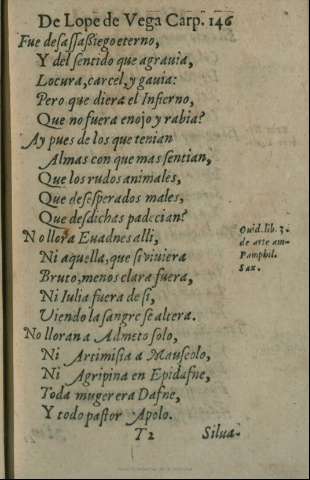 De Lope de Vega Carp. 146
Fue desassaßiego eterno,
Y del sentido que agrauia,
Locura, carcel, y gauia:
Pero que diera el Infierno,
Que no fuera enojo y rabia?
Ay pues de los que tenian
Almas con que mas sentian,
Que los rudos animales,
Que desesperados males,
Que desdichas padecian?
No llora Euadnes alli,
Ni aquella, que si viuiera
Bruto, menos clara fuera,
Ni Iulia fuera de si,
Uiendo la sangre se altera.
No lloran a Admeto solo,
Ni Artimisia a Mauseolo,
Ni Agripina en Epidafne,
Toda muger era Dafne,
Y todo pastor Apolo.
Ouid. lib. 3.
de arte am-
Pamphil.
Sax.
T 2 Silua-